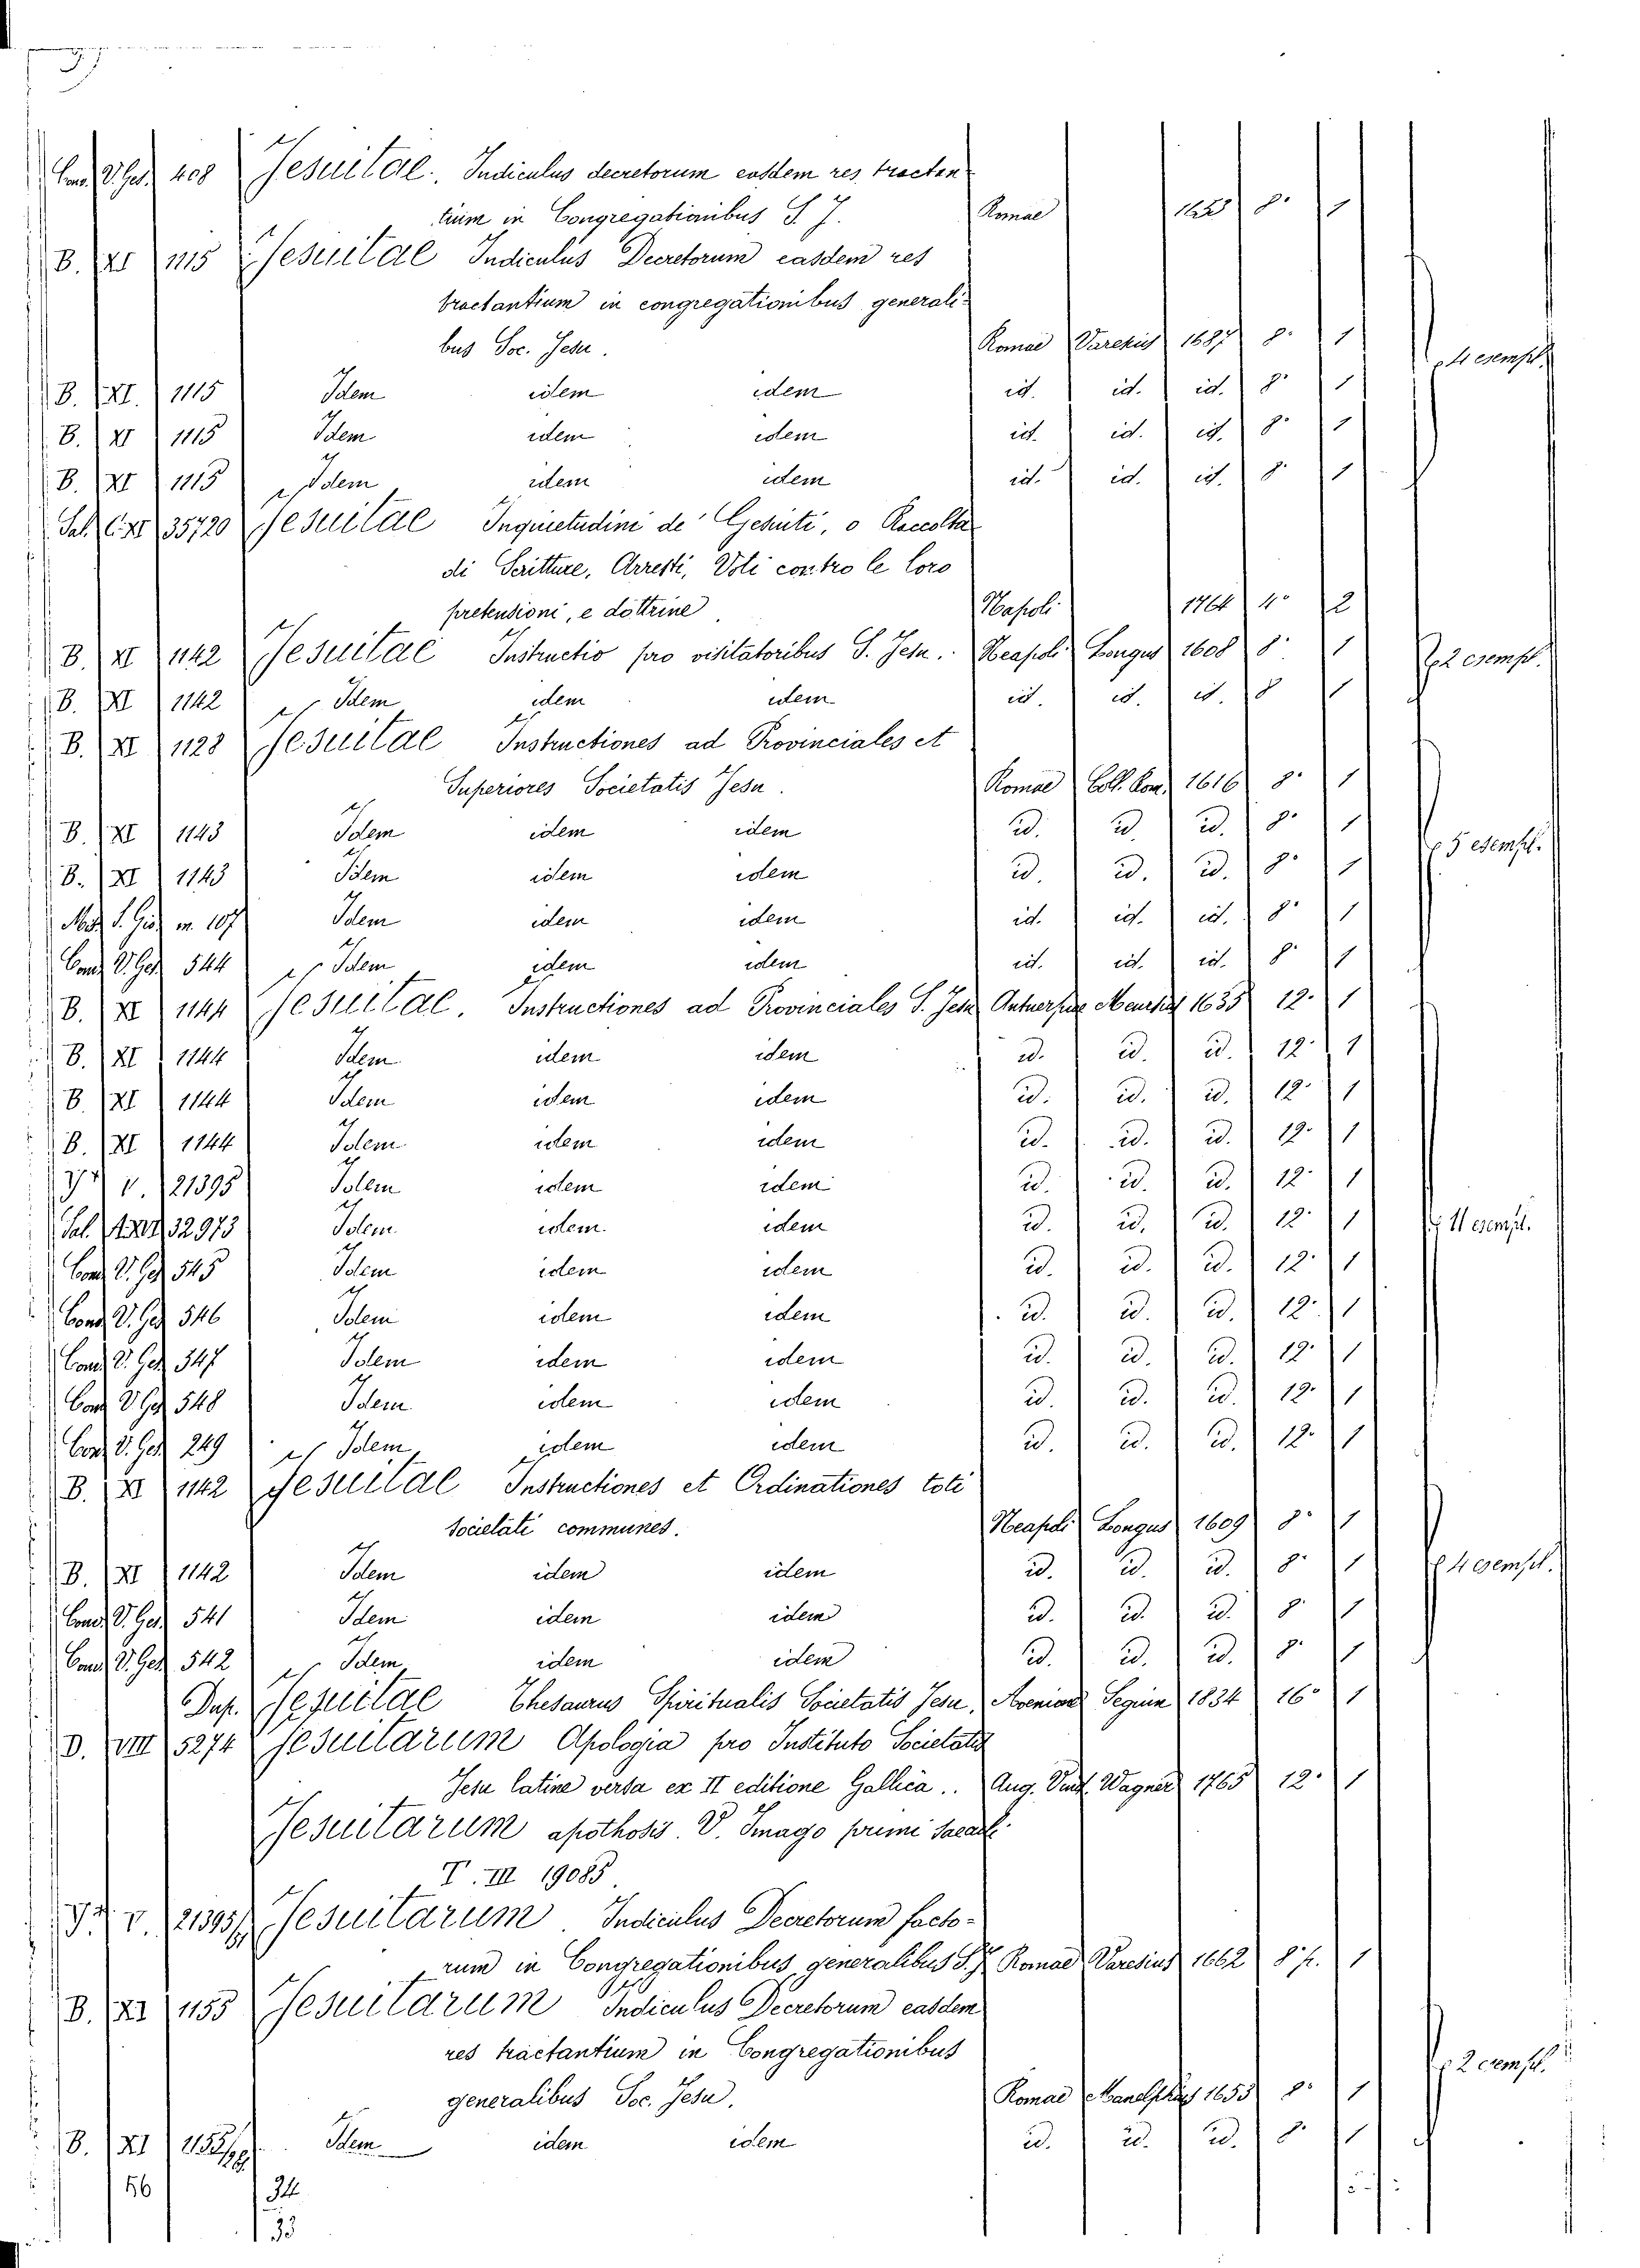 Con. V. Ges. 408 Jesuitae. Indiculus decretorum easdem res tractan-
tium in Congregationibus S. J. Romae 8° 1
B. XI 1115 Jesuitae Indiculus Decretorum easdem res
tractantium in congregationibus generali-
bus Soc. Jesu. Romae Varesius 1687 8° 1 4 esempl.
B. XI. 1115 Idem idem idem id. id. id. 8° 1
B. XI 1115 Idem idem idem id. id. id. 8° 1
B. XI 1115 Idem idem idem id. id. id. 8° 1
Sal. C. XI 35720 Jesuitae Inquietudini de' Gesuiti, o Raccolta
di Scritture, Arresti, Voli contro le loro
pretensioni, e dottrine Napoli 1764 4° 2
B. XI 1142 Jesuitae Instructio pro visitatoribus S. Jesu. Neapoli Longus 1608 8° 1 2 esempl.
B. XI 1142 Idem idem idem id. id. id. 8 1
B. XI 1128 Jesuitae Instructiones ad Provinciales et
Superiores Societatis Jesu. Romae Coll. Rom. 1616 8° 1
B. XI 1143 Idem idem idem id. id. id. 8° 1 5 esempl.
B. XI 1143 Idem idem idem id. id. id. 8° 1
m. 107 Idem idem idem id. id. id. 8° 1
Con. V. Ges. 544 Idem idem idem id. id. id. 8° 1
B. XI 1144 Jesuitae. Instructiones ad Provinciales S. Jesu Antuerpiae Meursius 1635 12° 1
B. XI 1144 Idem idem idem id. id. id. 12° 1
B. XI 1144 Idem idem idem id. id. id. 12° 1
B. XI 1144 Idem idem idem id. id. id. 12° 1
V. 21395 Idem idem idem id. id. id. 12° 1
Sal. 32973 Idem idem idem id. id. id. 12° 1 11 esempl.
Con. V. Ges. 545 Idem idem idem id. id. id. 12° 1
Con. V. Ges. 546 Idem idem idem id. id. id. 12° 1
Con. V. Ges. 547 Idem idem idem id. id. id. 12° 1
Con. V. Ges. 548 Idem idem idem id. id. id. 12° 1
Con. V. Ges. 249 Idem idem idem id. id. id. 12° 1
B. XI 1142 Jesuitae Instructiones et Ordinationes toti
Societati communes. Neapoli Longus 1609 8° 1
B. XI 1142 Idem idem idem id. id. id. 8° 1 4 esempl.
Con. V. Ges. 541 Idem idem idem id. id. id. 8° 1
Con. V. Ges. 542 Idem idem idem id. id. id. 8° 1
Dup. Jesuitae Thesaurus Spiritualis Societatis Jesu, Avenione Seguin 1834 16° 1
D. VIII 5274 Jesuitarum Apologia pro Instituto Societatis
Jesu latine versa ex II editione Gallica.. Aug. Vind. Wagner 1765 12° 1
Jesuitarum apothosis. V. Imago primi saeculi
T. III 19085
V. 21395 Jesuitarum. Indiculus Decretorum facto-
rum in Congregationibus generalibus S.J. Romae Varesius 1662 8° p. 1
B. XI 1155 Jesuitarum Indiculus Decretorum easdem
res tractantium in Congregationibus
generalibus Soc. Jesu. Romae Manelphius 1653 8° 1 2 esempl.
B. XI Idem idem idem id. id. id. 8° 1
56 34
33